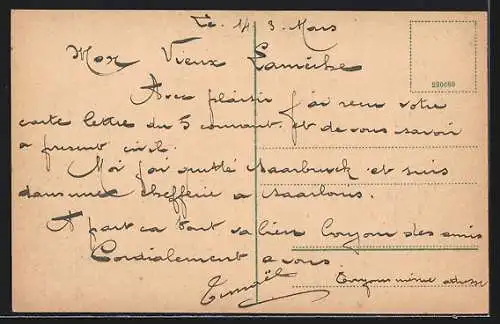 Le 14 3 Mars
Mon Vieux
Avec plaisir j'ai recu votre
carte lettre du 5 courant. et de vous savoir
a present civil.
Moi j'ai quitté Saarbruck et suis
dans une chefferie a Saarlouis.
A part ca tout va bien
Cordialement a vous
Toujours même adresse
230080